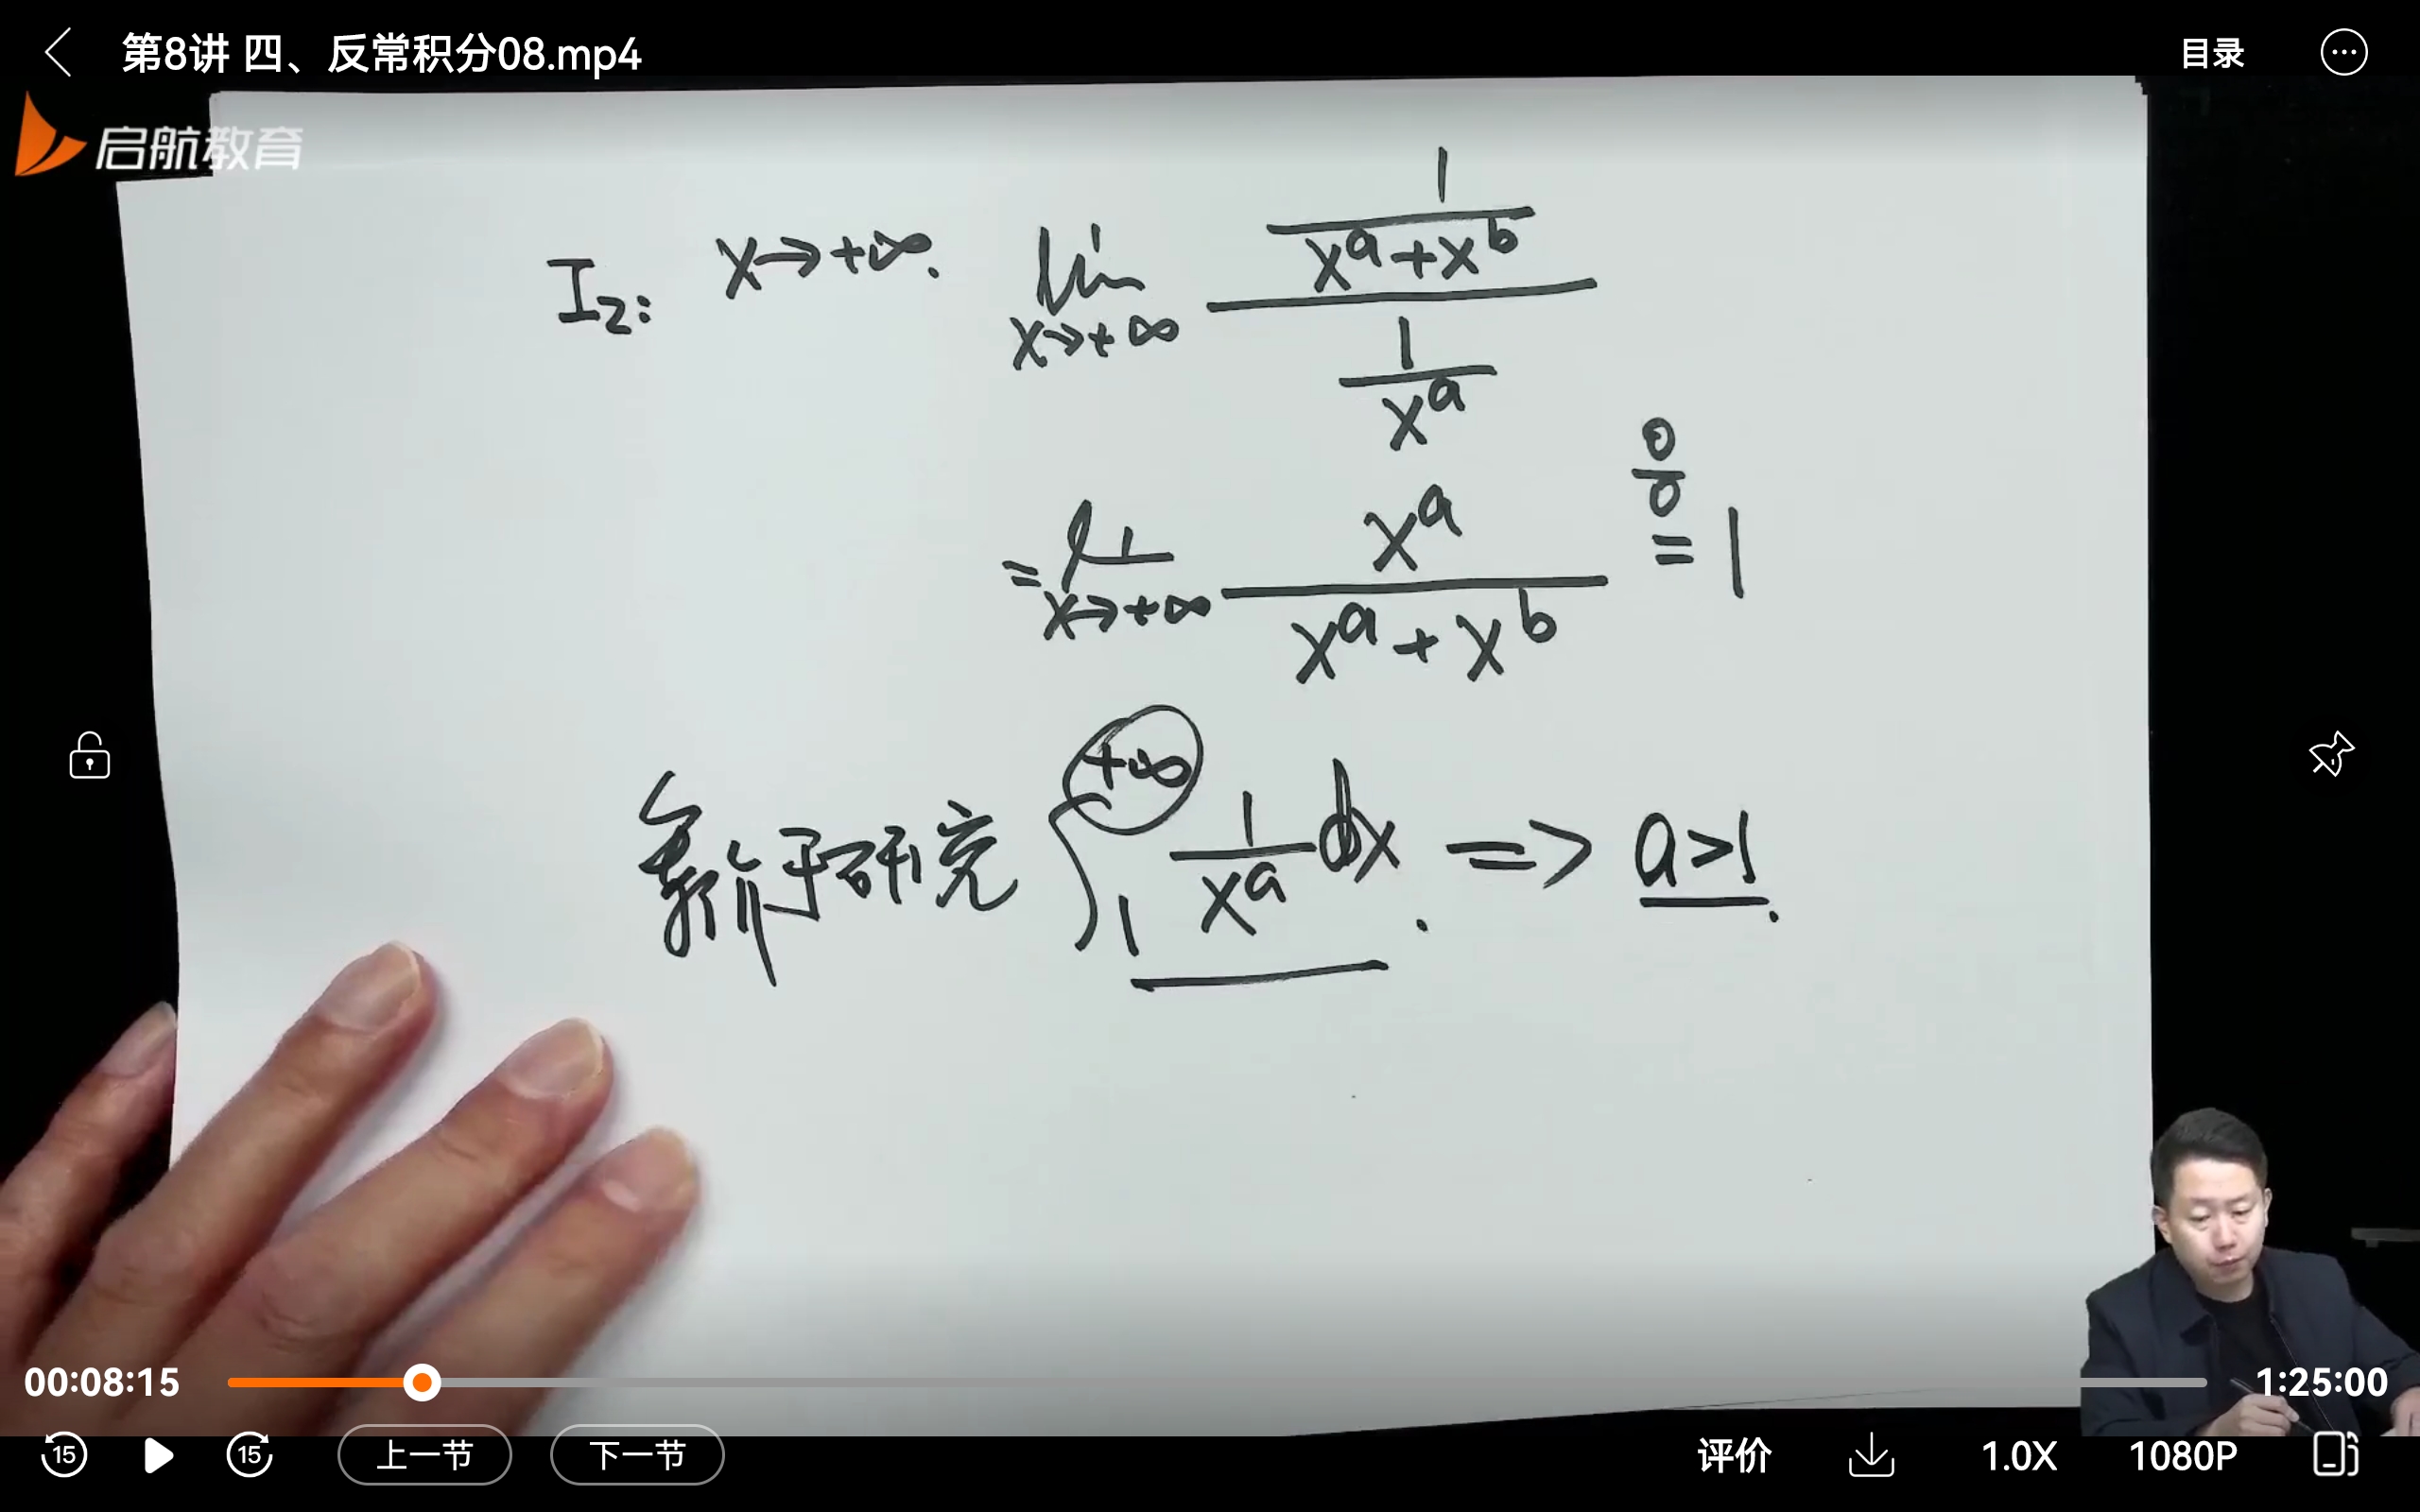 第8讲 四、反常积分08.mp4
目录
启航教育
I₂: x→+∞. lim x→+∞ (1/(x^a+x^b))/(1/x^a)
= lim x→+∞ x^a/(x^a+x^b) = 1
0/0
等价于研究 ∫₁^{+∞} 1/x^a dx. => a>1.
00:08:15
1:25:00
15
15
上一节
下一节
评价
1.0X
1080P